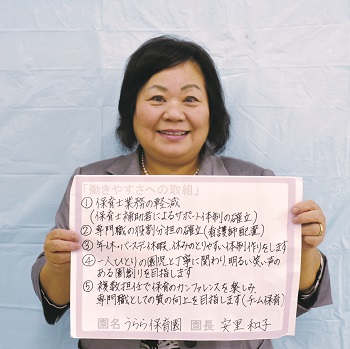 「働きやすさへの取組」
① 保育士業務の軽減
(保育士補助者によるサポート体制の確立)
② 専門職の役割分担の確立(看護師配置)
③ 年休・バースデイ休暇、休みのとりやすい体制作りをします
④ 一人ひとりの園児と丁寧に関わり、明るい笑い声の
ある園創りを目指します
⑤ 複数担任で保育のカンファレンスを楽しみ
専門職としての質の向上を目指します(チーム保育)
園名 うらら保育園 園長 安里 和子